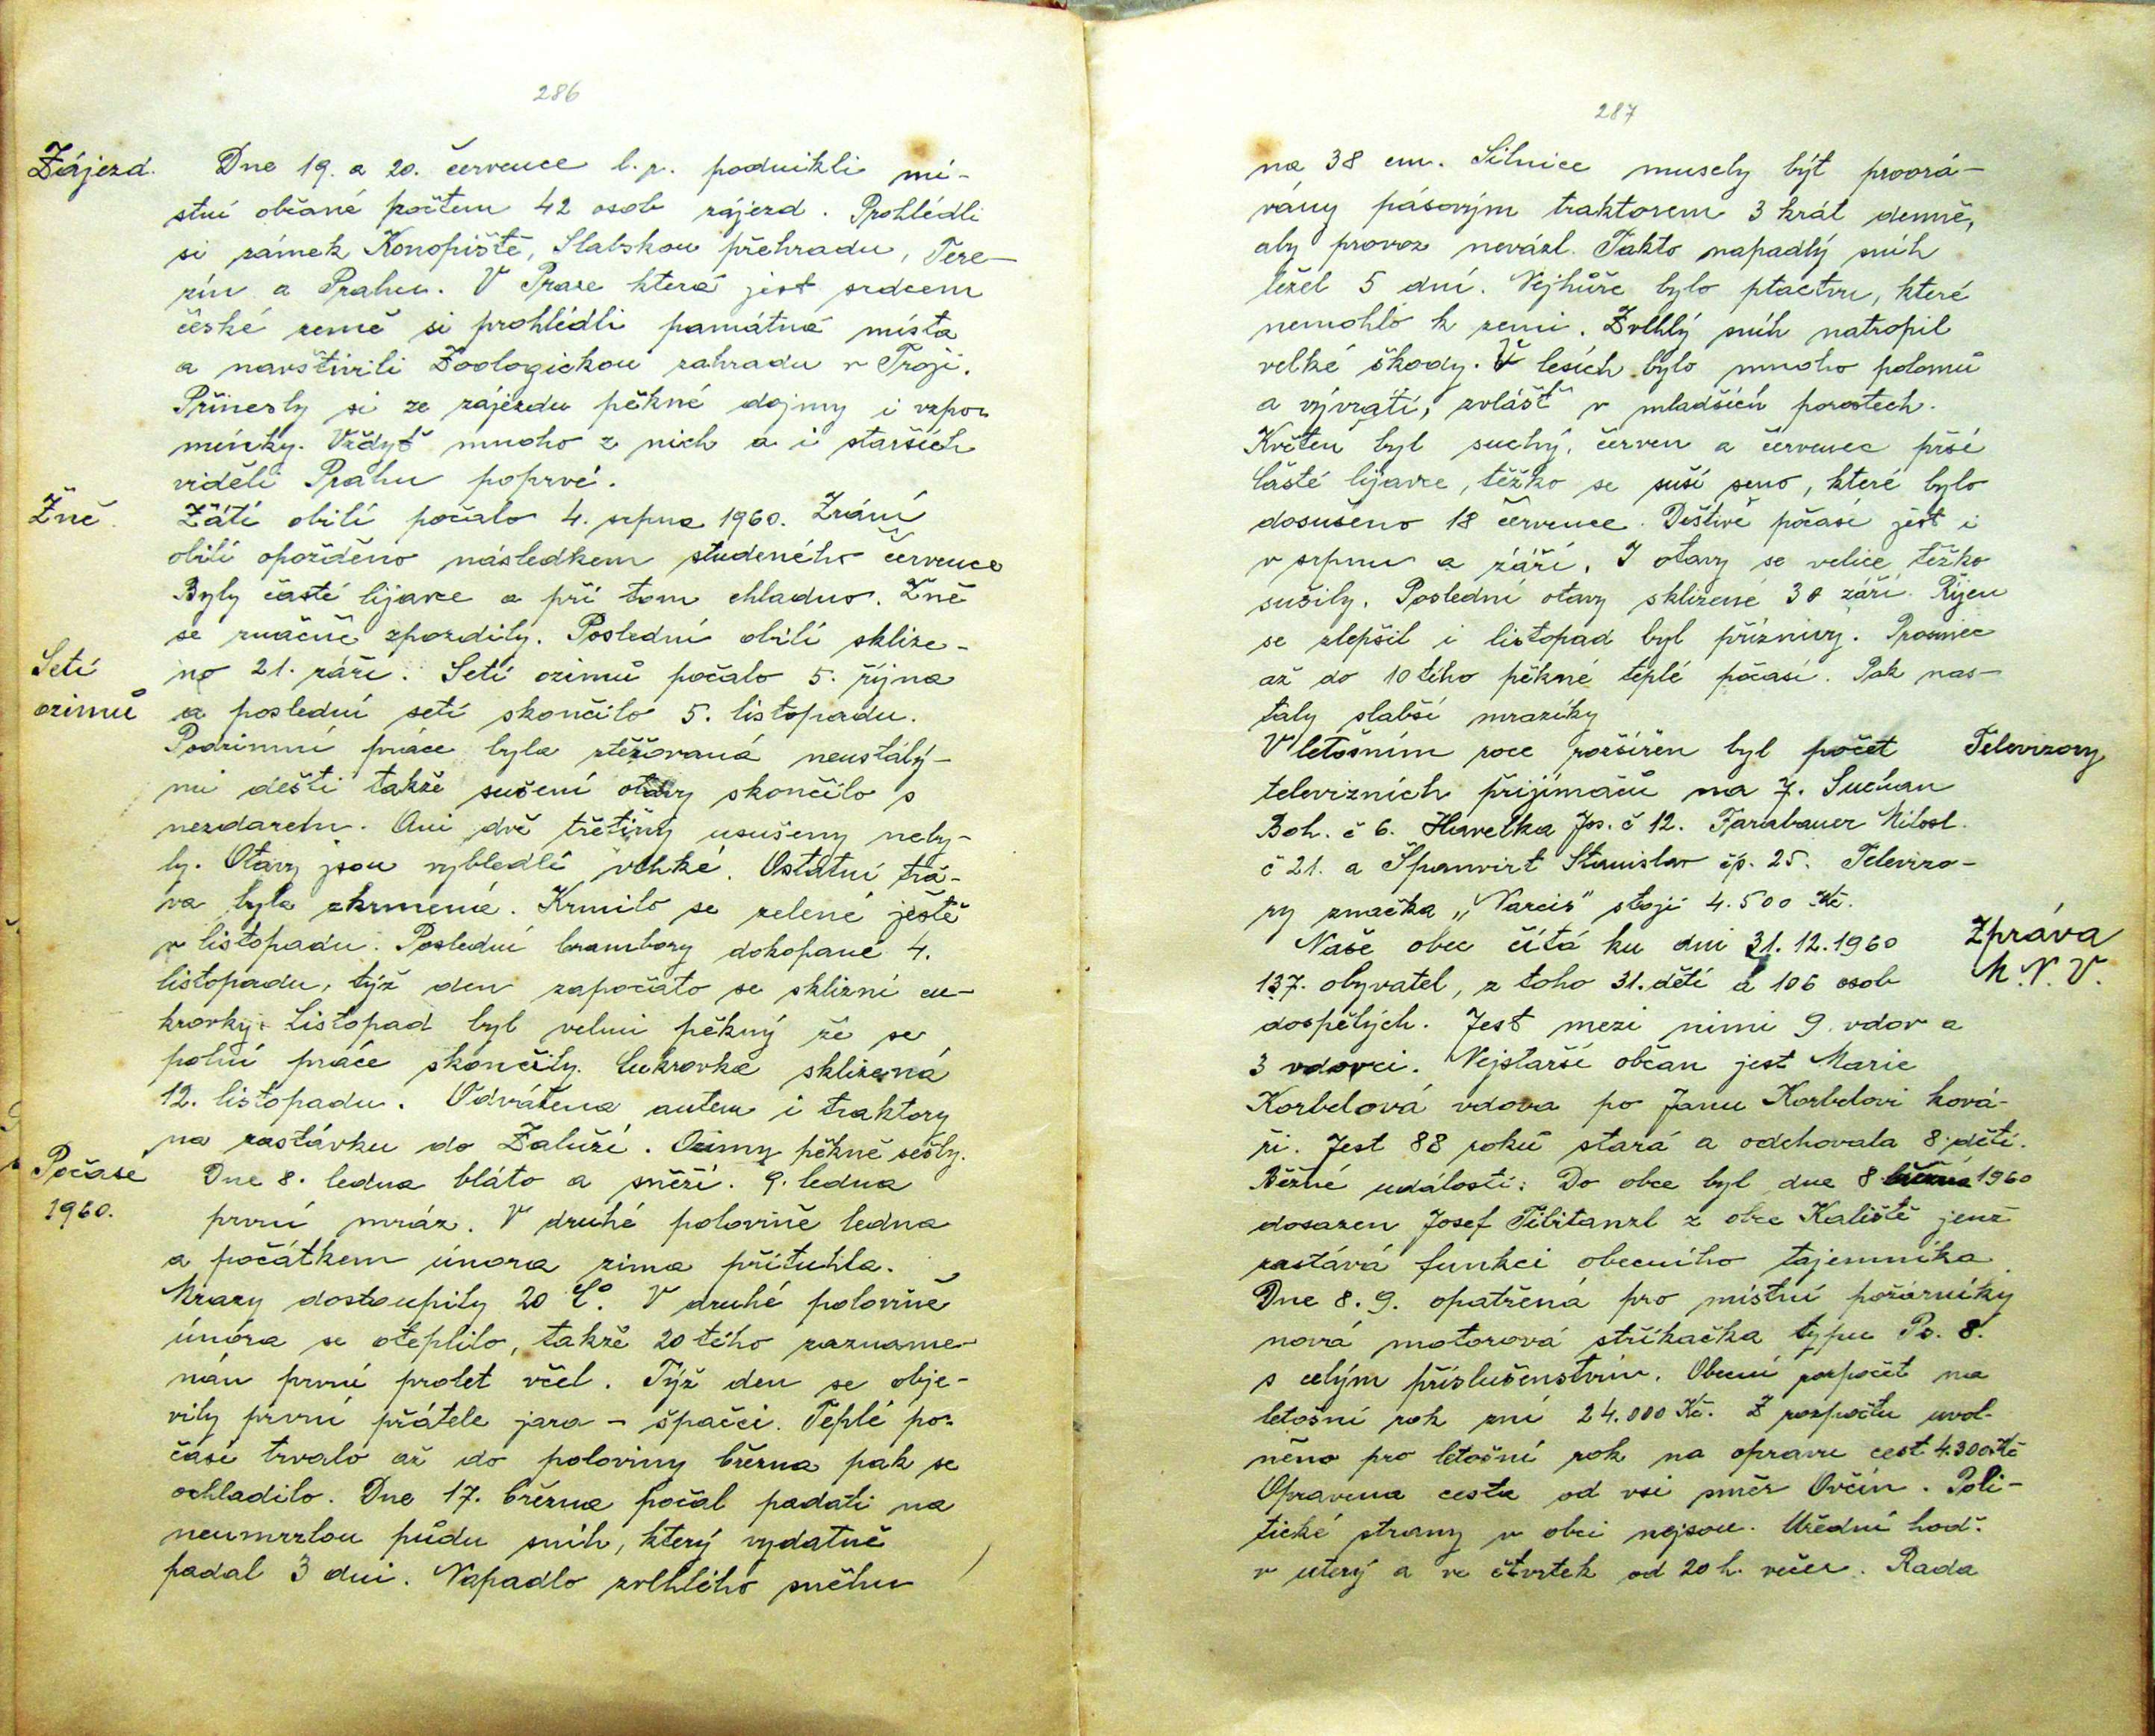 286
Zájezd. Dne 19. a 20. července l.r. podnikli mí-
stní občané počtem 42 osob zájezd. Prohlédli
si zámek Konopiště, Slabskou přehradu, Tere-
zín a Prahu. V Praze která jest srdcem
české země si prohlédli památná místa
a navštívili Zoologickou zahradu v Troji.
Přinesly si ze zájezdu pěkné dojmy i vzpo-
mínky. Vždyť mnoho z nich a i starších
viděli Prahu poprvé.
Žně. Žätí obilí počalo 4. srpna 1960. Zrání
obilí opožděno následkem studeného července
Byly časté lijavce a při tom chladno. Žně
se značně zpozdily. Poslední obilí sklize-
Setí no 21. září. Setí ozimů počalo 5. října
ozimů a poslední setí skončilo 5. listopadu.
Podzimní práce byla ztěžovaná neustálý-
mi dešti takže sušení otavy skončilo s
nezdarem. Ani dvě třetiny usušeny neby-
ly. Otavy jsou vybledlé vlhké. Ostatní trá-
va byla zkrmená. Krmilo se zelené ještě
v listopadu. Poslední brambory dokopané 4.
listopadu, týž den započato se sklizní cu-
krovky. Listopad byl velmi pěkný že se
polní práce skončily. Cukrovka sklizená
12. listopadu. Odvážena autem i traktory
na zastávku do Zaluží. Ozimy pěkně sešly.
Počasí Dne 8. ledna bláto a sněží. 9. ledna
1960. první mráz. V druhé polovině ledna
a počátkem února zima přituhla.
Mrazy dostoupily 20 C°. V druhé polovině
února se oteplilo, takže 20tého zazname-
nán první prolet včel. Týž den se obje-
vily první přátele jara - špačci. Teplé po-
časí trvalo až do poloviny března pak se
ochladilo. Dne 17. března počal padati na
neumrzlou půdu sníh, který vydatně
padal 3 dni. Napadlo zvlhlého sněhu
287
na 38 cm. Silnice musely být proorá-
vány pásovým traktorem 3 krát denně,
aby provoz nevázl. Takto napadlý sníh
ležel 5 dní. Nejhůře bylo ptactvu, které
nemohlo k zemi. Zvlhlý sníh natropil
velké škody. V lesích bylo mnoho polomů
a vývratí, zvlášť v mladších porostech.
Květen byl suchý, červen a červenec prší
časté lijavce, těžko se suší seno, které bylo
dosušeno 18 července. Deštivé počasí jest i
v srpnu a září. I otavy se velice těžko
sušily. Poslední otavy sklizené 30 září. Říjen
se zlepšil i listopad byl příznivý. Prosinec
až do 10tého pěkné teplé počasí. Pak nas-
taly slabší mrazíky
V letošním roce rozšířen byl počet Televizory
televizních přijímačů na 7. Suchan
Boh. č 6. Havelka Jos. č 12. Farabauer Milosl.
č 21. a Španvirt Stanislav čp. 25. Televizo-
ry značka „Narcis" stojí 4.500 Kč.
Naše obec čítá ku dni 31.12.1960 Zpráva
137. obyvatel, z toho 31. dětí a 106 osob M.N.V.
dospělých. Jest mezi nimi 9 vdov a
3 vdovci. Nejstarší občan jest Marie
Korbelová vdova po Janu Korbelovi ková-
ři. Jest 88 roků stará a odchovala 8 dětí.
Běžné události: Do obce byl dne 8 března 1960
dosazen Josef Tibitanzl z obce Kaliště jenž
zastává funkci obecního tajemníka.
Dne 8. 9. opatřená pro místní požárníky
nová motorová stříkačka typu Ps. 8.
s celým příslušenstvím. Obecní rozpočet na
letošní rok zní 24.000 Kč. Z rozpočtu uvol-
něno pro letošní rok na opravu cest 4.300 Kč
Opravena cesta od vsi směr Ovčín. Poli-
tické strany v obci nejsou. Úřední hod.
v uterý a ve čtvrtek od 20 h. večer. Rada